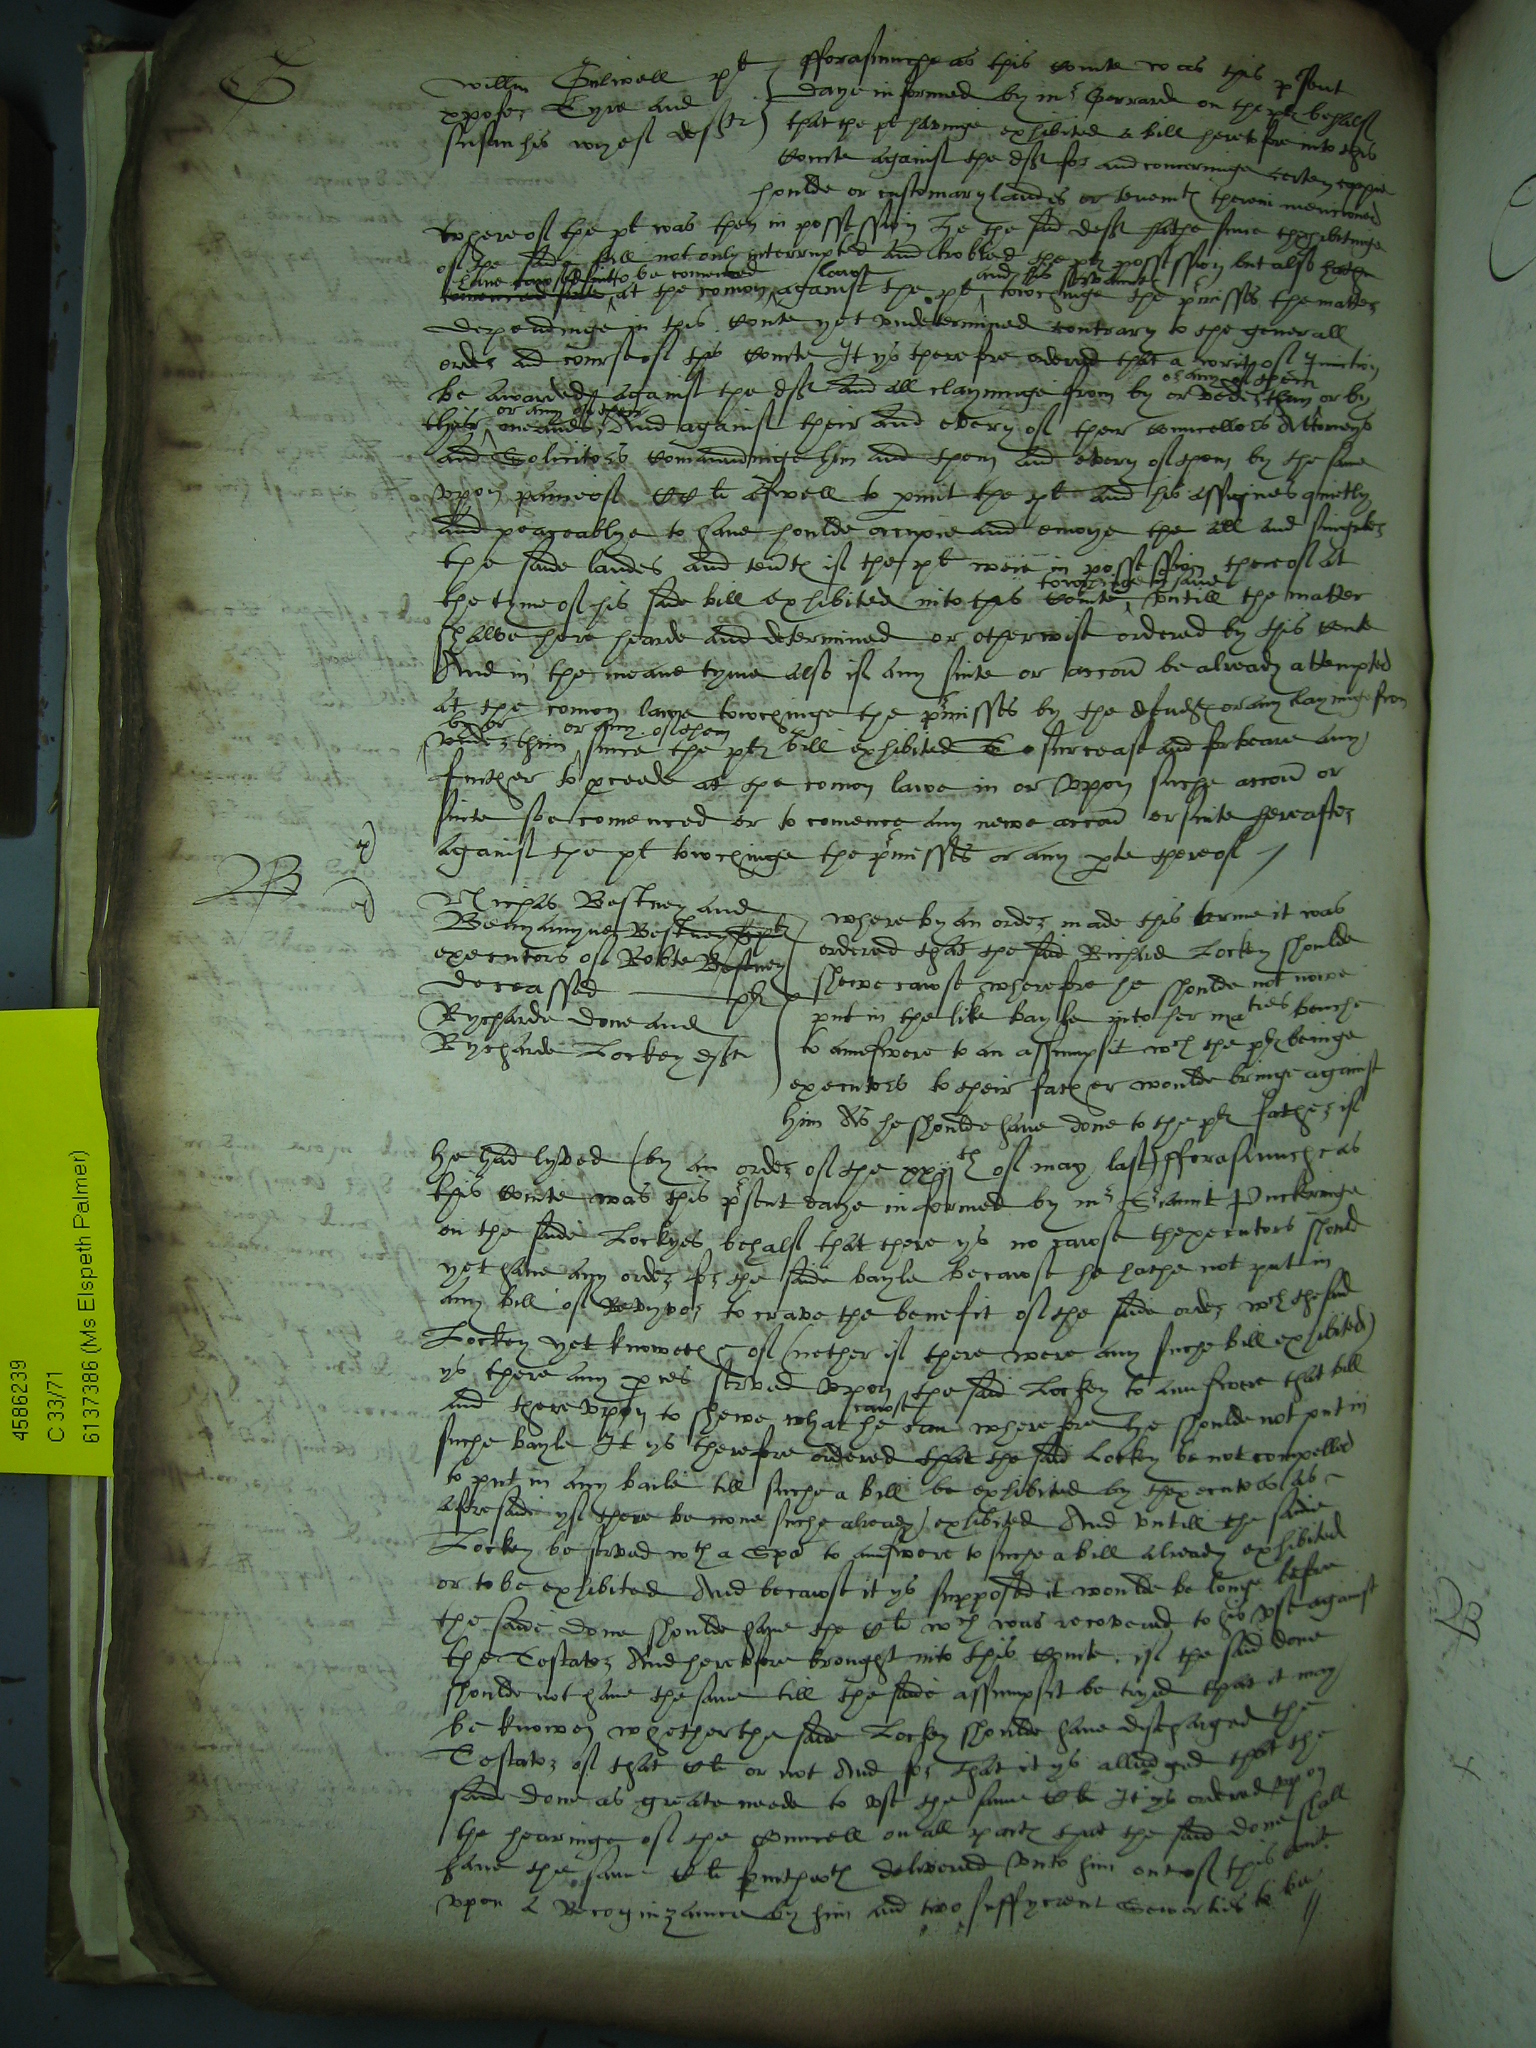 Willm pl
Tyre and
Susan his wyef deftes
fforasmuche as this Courte was this psent
daye informed by mr Gerrarde on the ples behalf
that the pl havinge exhibited a bill heretofore into this
Courte against the deftes for and concerninge certen coppie
houlde or customary landes or tenemtes therein mencioned
Whereof the pl was then in possession he the said deftes hathe since thexhibitinge
of the saide bill not only interrupted and trobled the ples possession but also hathe
have caused suite to be comenced lawe and his servauntes
comenced suite at the comon against the pl towchinge the pmisses the matter
dependinge in this Courte yet undetermined contrary to the generall
order and course of this Courte It ys therefore ordered that a writt of Iniunction
or any of them
be awarded against the deftes and all clayminge from by or under them or by
or any of them
their meanes And against their and every of their Councellors Attorneys
and Solicitors Comaundinge him and them and every of them by the same
upon paine of CC li aswell to pmit the pl and his assignes quietly
and peaceablye to have houlde occupie and enioye the all and singuler
the saide landes and tentes if the pl were in possession thereof at
towchinge the same
the tyme of his saide bill exhibited into this Courte untill the matter
shalbe here hearde and determined or otherwise ordered by this Courte
And in the meane tyme also if any suite or accon be already attempted
at the comon lawe towchinge the pmisses by the defendtes or any clayminge from
by or or any of them
under him since the ples bill exhibited To surcease and forbeare any
further to pceede at the comon lawe in or upon suche accon or
suite soe comenced or to comence any newe accon or suite hereafter
against the pl towchinge the pmisses or any pte thereof /
ex
ex
Nichas Bestney and
Beniamyne Bestney ples
executors of Robte Bestney
deceassed ples
Rycharde Done and
Rycharde Lockey deftes
where by an order made this terme it was
ordered that the said Richard Lockey shoulde
shewe cawse wherefore he shoulde not nowe
put in the like bayle into her maties benche
to aunswere to an assumpsit wch the ples beinge
executors to their father woulde bringe against
him As he shoulde have done to the ples father if
he had lyved (by an order of the xxijth of may last) fforasmuche as
this Courte was this psent daye informed by mr Sriaunt Puckeringe
on the saide Lockyes behalf that there ys no cawse thexecutors should
yet have any order for the saide bayle because he hathe not put in
any bill of Revyvor to crave the benefit of the saide order wch the said
Lockey yet knoweth of (nether if there were any suche bill exhibited)
ys there any pces served upon the said Lockey to aunswere that bill
cawse
and thereupon to shewe what he can wherefore he shoulde not put in
suche bayle It ys therefore ordered that the said Lockey be not compelled
to put in any baile till suche a bill be exhibited by thexecutors as
aforesaide yf there be none suche already exhibited And untill the saide
Lockey be served wth a Spa to aunswere to suche a bill already exhibited
or to be exhibited And because it ys supposed it woulde be longe before
the saide Done shoulde have the CC li wch was recovered to his use against
the Testator And heretofore brought into this Courte if the said Done
shoulde not have the same till the saide assumpsit be tryed that it may
be knowen whether the saide Lockey shoulde have discharged the
Testator of that CC li or not And for that it ys alledged that the
saide Done as greate neede to use the same CC li It ys ordered upon
the hearinge of the Councell on all partes that the said Done shall
have the same CC li furthwth delivered unto him out of this Courte
upon a Recognizaunce by him and two suffycient Sewerties to be //
4586239
C 33/71
6137386 (Ms Elspeth Palmer)